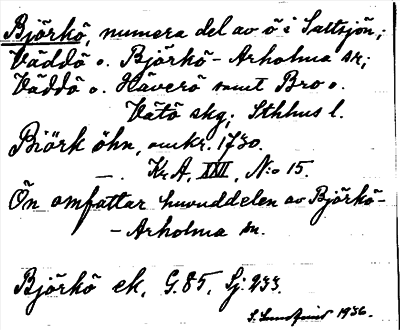 Björkö, numera del av ö i Saltsjön;
Väddö o. Björkö-Arholma sn;
Väddö o. Häverö samt Bro o.
Vätö skg; Sthlms l.
Biörk öhn, omkr. 1730.
—. Kr.A. XXII, N:o 15.
Ön omfattar huvuddelen av Björkö-
-Arholma sn.
Björkö ek. G.85, Sj.233.
S. Lundqvist 1936.